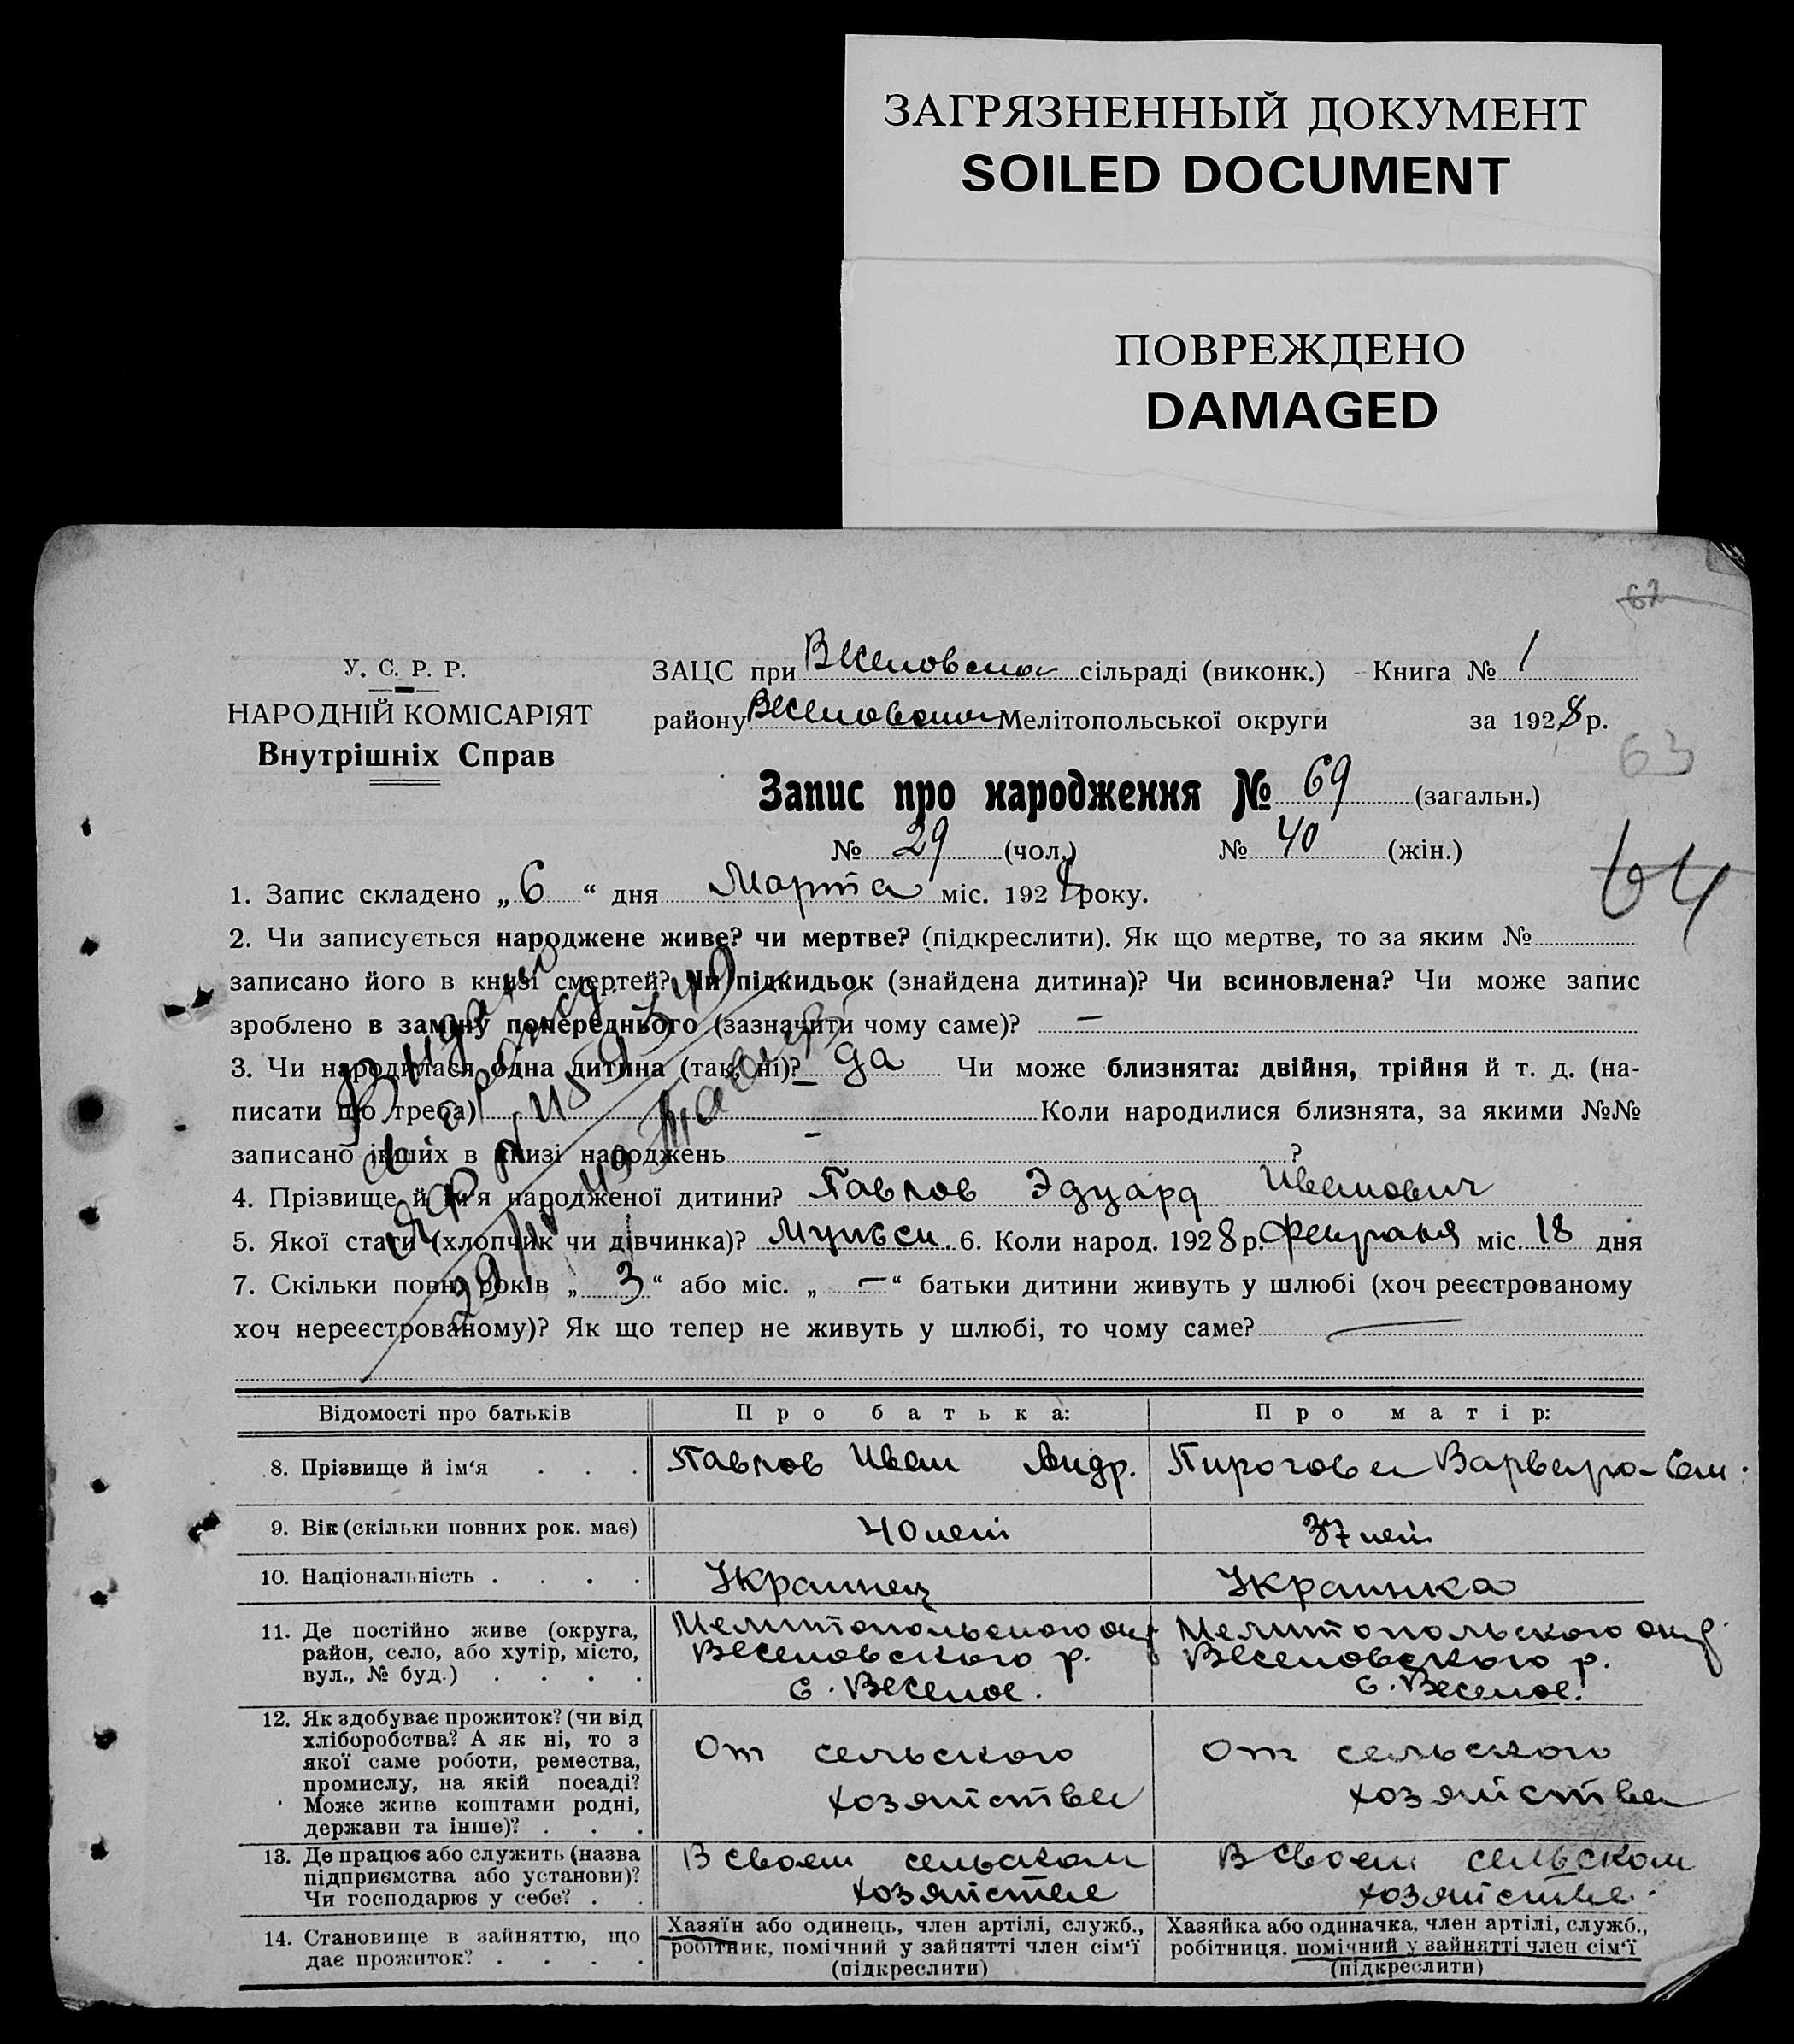 ЗАГРЯЗНЕННЫЙ ДОКУМЕНТ
SOILED DOCUMENT
ПОВРЕЖДЕНО
DAMAGED
62
У. С. Р. Р.
НАРОДНІЙ КОМІСАРІЯТ
Внутрішніх Справ
ЗАЦС при Веселовском сільраді (виконк.) - Книга № 1
району Веселовском Мелітопольської округи за 1928 р.
63
Запис про народження № 69 (загальн.)
№ 29 (чол.) № 40 (жін.)
64
1. Запис складено „ 6 “ дня Марта міс. 1928 року.
2. Чи записується народжене живе? чи мертве? (підкреслити). Як що мертве, то за яким №
записано його в книзі смертей? Чи підкидьок (знайдена дитина)? Чи всиновлена? Чи може запис
зроблено в заміну попереднього (зазначити чому саме)? —
3. Чи народилася одна дитина (так, ні)? да Чи може близнята: двійня, трійня й т. д. (на-
писати що треба) Коли народилися близнята, за якими №№
записано інших в книзі народжень — ?
4. Прізвище й ім'я народженої дитини? Павлов Эдуард Иванович
5. Якої стати (хлопчик чи дівчинка)? Мужск. 6. Коли народ. 1928 р. Февраля міс. 18 дня
7. Скільки повн. років „ 3 “ або міс. „ — “ батьки дитини живуть у шлюбі (хоч реєстрованому
хоч нереєстрованому)? Як що тепер не живуть у шлюбі, то чому саме? —
Видано
Відомості про батьків Про батька: Про матір:
8. Прізвище й ім'я . . . Павлов Иван Андр. Пирогова Варвара
9. Вік (скільки повних рок. має) 40 лет 37 лет
10. Національність . . . . Украинец Украинка
11. Де постійно живе (округа, Мелитопольского окр Мелитопольского окр.
район, село, або хутір, місто, Веселовского р. Веселовского р.
вул., № буд.) . . . . с. Веселое. с. Веселое.
12. Як здобуває прожиток? (чи від
хліборобства? А як ні, то з
якої саме роботи, ремества, От сельского От сельского
промислу, на якій посаді?
Може живе коштами родні, хозяйства хозяйства
держави та інше)? . . .
13. Де працює або служить (назва В своем сельском В своем сельском
підприємства або установи)?
Чи господарює у себе? . . хозяйстве хозяйстве.
14. Становище в зайняттю, що Хазяїн або одинець, член артілі, служб., Хазяйка або одиначка, член артілі, служб.,
дає прожиток? . . . . робітник, помічний у зайнятті член сім'ї робітниця, помічний у зайнятті член сім'ї
(підкреслити) (підкреслити)